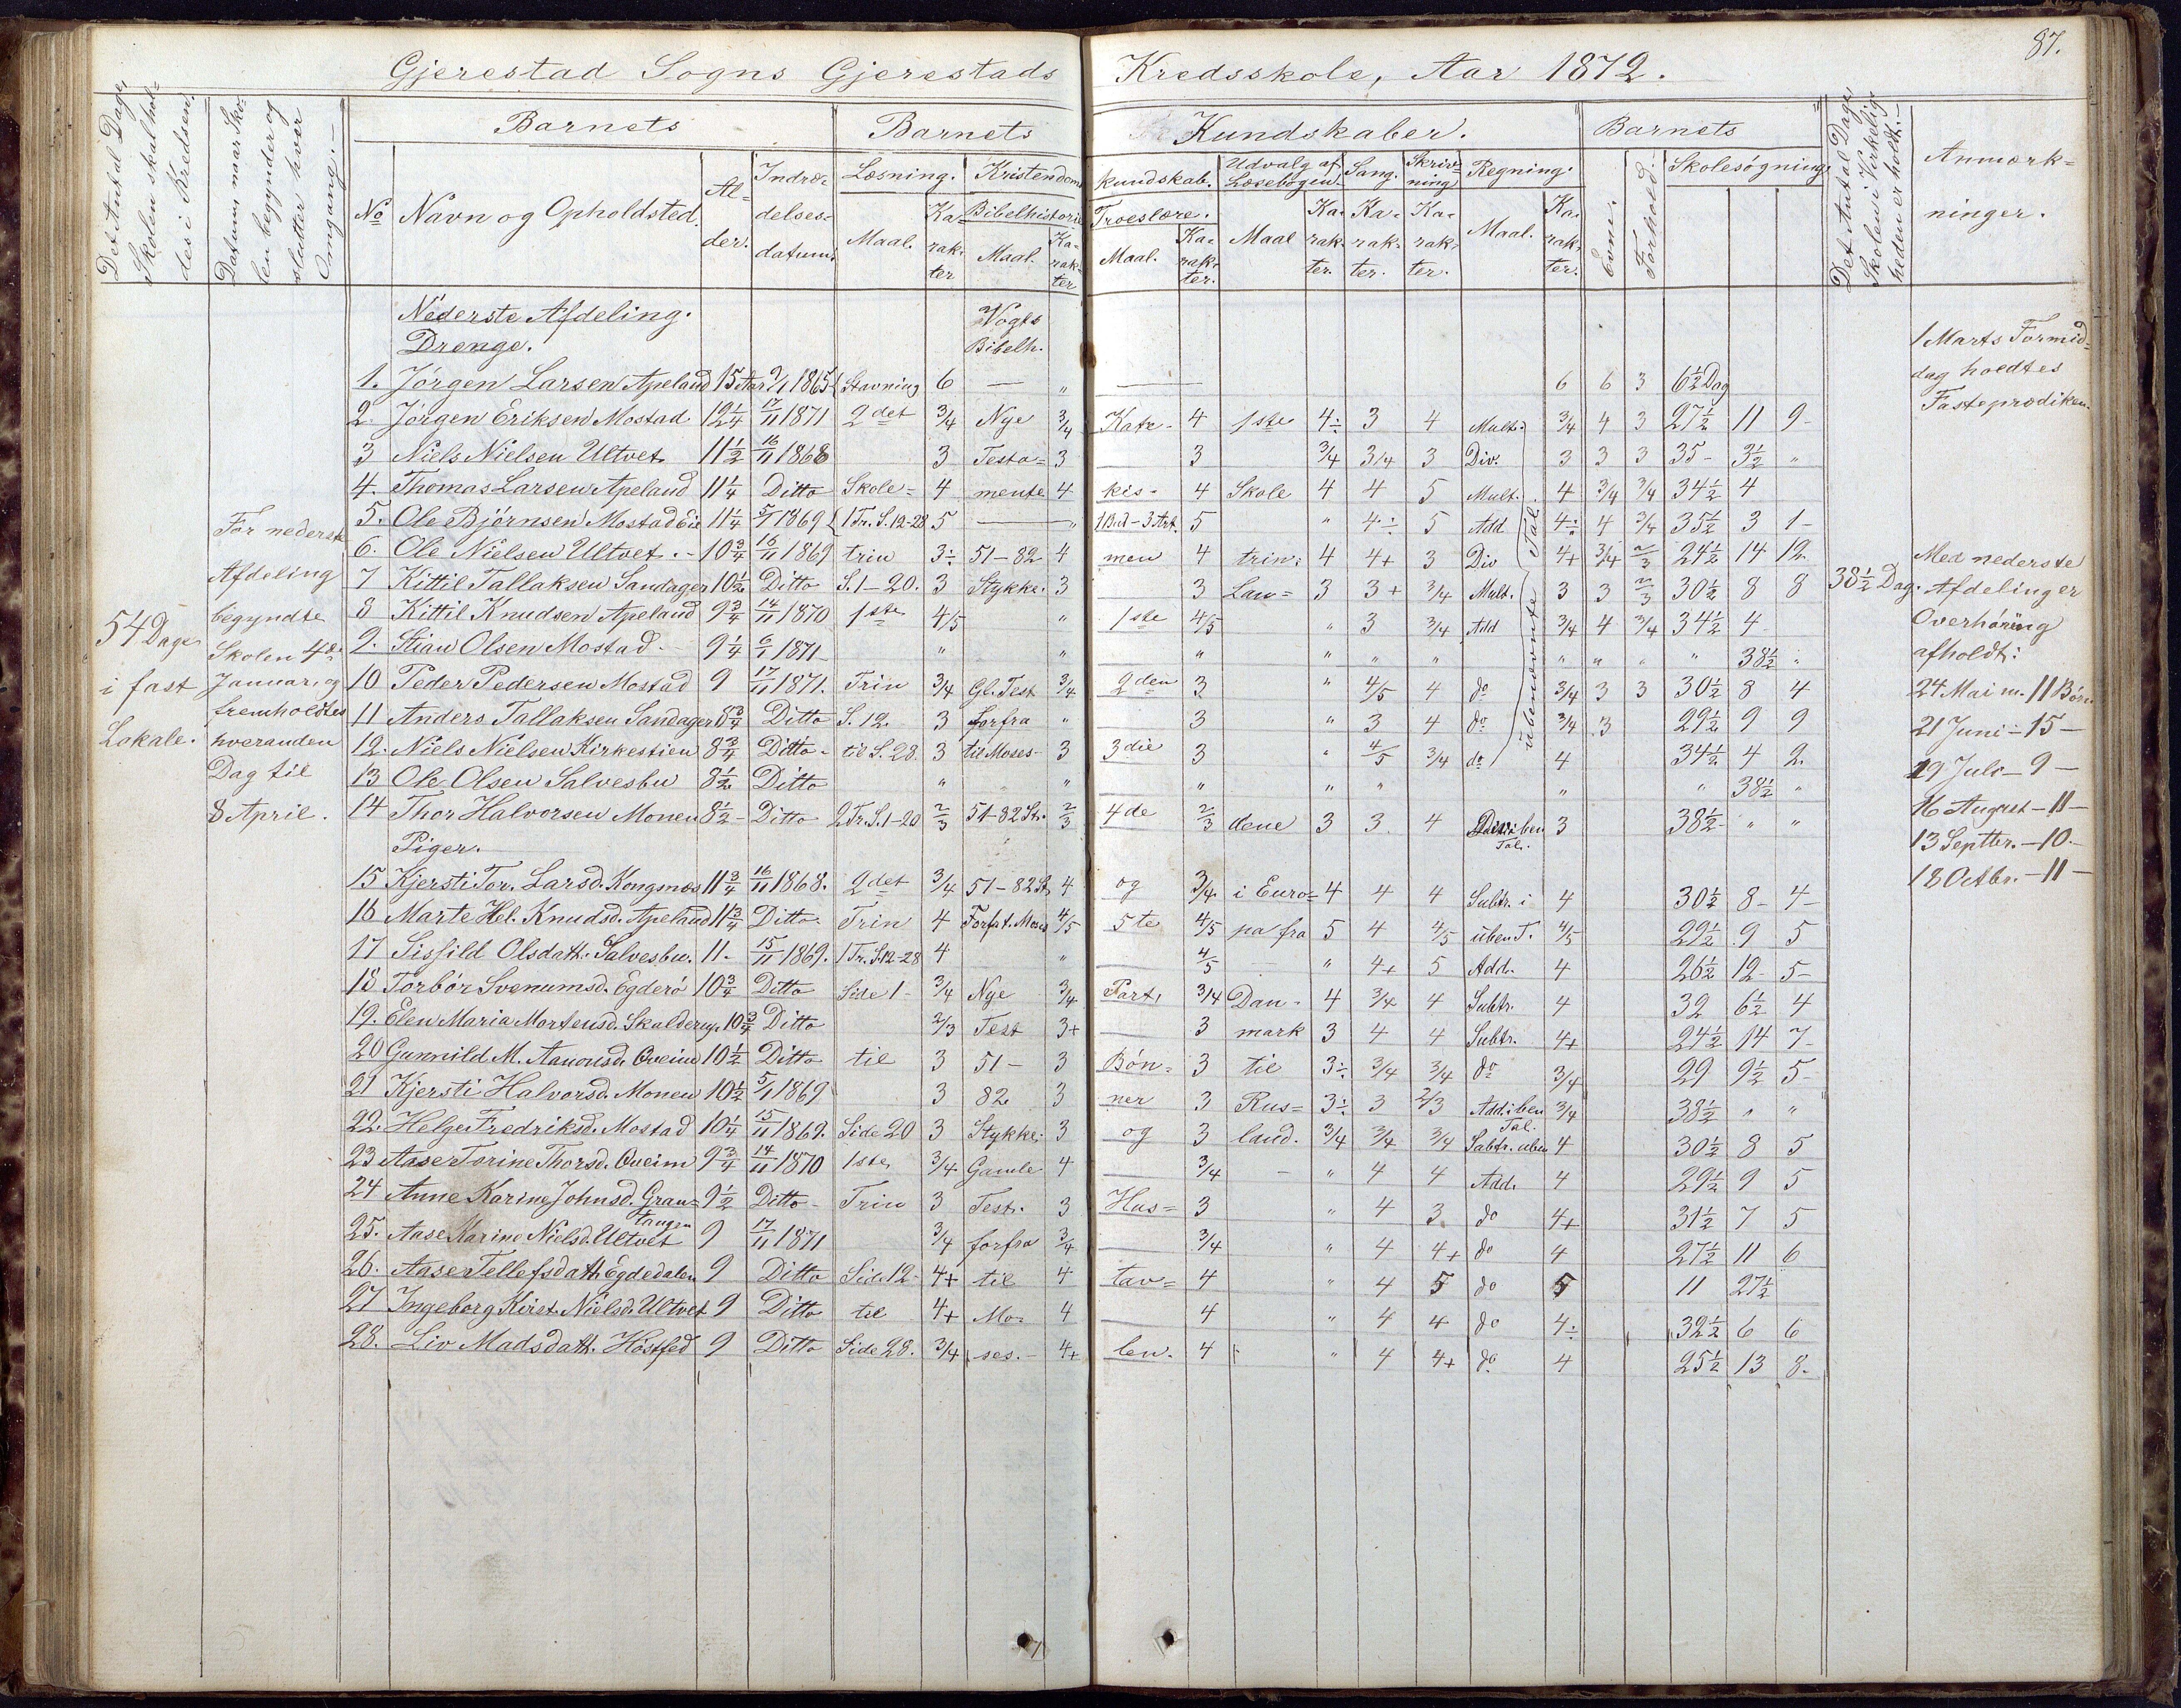 87.
Gjerestad Sogns Gjerestads Kredsskole, Aar 1872.
Det Antal Dage Skolen skal holdes i Kredsen.
Datum, naar Skolen begynder og slutter hver Omgang.
Barnets
Barnets Kundskaber.
Barnets
No
Navn og Opholdsted.
Al-der.
Indtræ-delses-datum.
Læsning.
Maal.
Ka-rak-ter
Kristendoms kundskab.
Bibelhistorie
Maal.
Ka-rak-ter
Troeslære.
Maal.
Ka-rak-ter.
Udvalg af Læsebogen.
Maal
Ka-rak-ter.
Sang.
Ka-rak-ter.
Skriv-ning
Ka-rak-ter.
Regning.
Maal.
Ka-rak-ter.
Evne.
Forhold.
Skolesøgning
Det Antal Dage Skolen i Virkelig-heden er holdt.
Anmærk-ninger.
Nederste Afdeling. Vogts
Drenge. Bibelh.
1. Jørgen Larsen Apeland 15 Aar 9/1 1865 Stavning 6 — „ — 6 6 3 6½ Dag
2. Jørgen Eriksen Mostad 12¼ 17/11 1871 2det 3/4 Nye 3/4 Kate- 4 1ste 4÷ 3 4 Mult. 3/4 4 3 27½ 11 9
3 Niels Nielsen Ultvet 11½ 16/11 1868 3 Testa= 3 3 3/4 3/4 3 Div. 3 3 3 35 3½ „
4. Thomas Larsen Apeland 11¼ Ditto Skole= 4 mente 4 kis- 4 Skole 4 4 5 Mult. 4 3/4 3/4 34½ 4
5. Ole Bjørnsen Mostad Eie 11¼ 5/1 1869 1 Tr. S. 12-28 5 — „ 1 Bud-3 Art. 5 „ 4÷ 5 Add 4÷ 4 3/4 35½ 3 1
6. Ole Nielsen Ultvet 10¾ 16/11 1869 trin 3÷ 51-82 4 men 4 trin: 4 4+ 3 Div 4+ 3/4 2/3 24½ 14 12
7 Kittil Tallaksen Sandager 10½ Ditto S. 1-20. 3 Stykke. 3 3 Lan= 3 3+ 3/4 Mult. 3 3 2/3 30½ 8 8
8 Kittil Knudsen Apeland 9¾ 14/11 1870 1ste 4/5 „ 1ste 4/5 „ 3 3/4 Add 3/4 4 3/4 34½ 4
9. Stian Olsen Mostad 9¼ 6/1 1871 „ „ „ „ „ „ „ „ „ „ 38½ „
10 Peder Pedersen Mostad 9 17/11 1871. Trin 3/4 Gl. Test 3/4 2den 3 „ 4/5 4 do 3/4 3 3 30½ 8 4
11 Anders Tallaksen Sandager 8¾ Ditto S. 12. 3 forfra „ 3 „ 3 4 do 3/4 3 29½ 9 9
12. Niels Nielsen Kirkestien 8¾ Ditto til S. 28. 3 til Moses 3 3die 3 „ 4/5 3/4 do 4 34½ 4 2
13 Ole Olsen Salvesbu 8½ Ditto „ „ „ „ „ „ „ 38½ „
14 Thor Halvorsen Monen 8½ Ditto 2 Tr. S. 1-20 2/3 51-82 St. 2/3 4de 2/3 dene 3 3 4 Div. i ben Tal. 3 38½ „ „
i ubenævnte Tal.
Piger.
15 Kjersti Tor. Larsd. Kongsnæs 11¾ 16/11 1868. 2det 3/4 51-82 St. 4 og 3/4 i Euro= 4 4 4 Subtr. i 4 30½ 8 4
16 Marte Hel. Knudsd. Apeland 11¾ Ditto Trin 4 Forfat. Moses 4/5 5te 4/5 pa fra 5 4 4/5 uben T. 4/5 29½ 9 5
17 Sissild Olsdatt. Salvesbu. 11. 15/11 1869. 1 Tr. S. 12-28 4 „ 4/5 „ 4+ 5 Add. 4 26½ 12 5
18 Torbør Svenumsd. Egderø 10¾ Ditto Side 1- 3/4 Nye 3/4 Part, 3/4 Dan- 4 3/4 4 Subtr. 4 32 6½ 4
19. Elen Maria Mortensd. Skalderup. 10¾ Ditto 2/3 Test 3+ 3 mark 3 4 4 Subtr. 4+ 24½ 14 7
20 Gunnild M. Aanonsd. Oveim 10½ Ditto til 3 51- 3 Bøn= 3 til 3÷ 3/4 3/4 do 3/4 29 9½ 5
21 Kjersti Halvorsd. Monen 10½ 5/1 1869 3 82 3 ner 3 Rus= 3÷ 3 2/3 Add. i ben Tal. 3/4 38½ „ „
22. Helge Fredriksd. Mostad 10¼ 15/11 1869. Side 20 3 Stykke. 3 og 3 land. 3/4 3/4 3/4 Subtr. uben 4 30½ 8 5
23 Aase Torine Thorsd. Oveim 9¾ 14/11 1870 1ste 3/4 Gamle 4 3/4 „ 4 4 Add. 4 29½ 9 5
24 Anne Karine Johnsd. Gran= tangen 9½ Ditto Trin 3 Test. 3 Hus= 3 „ 4 3 do 4+ 31½ 7 5
25. Aase Marine Nielsd. Ultvet 9 17/11 1871 3/4 forfra 3/4 3/4 „ 4 4+ do 4 27½ 11 6
26. Aase Tellefsdatt. Egdedalen 9 Ditto Side 12- 4+ til 4 tav= 4 „ 4 5 do 5 11 27½
27 Ingeborg Kirst. Nielsd. Ultvet 9 Ditto til 4+ Mo= 4 4 „ 4 4 do 4÷ 32½ 6 6
28. Liv Madsdatt. Høstfed 9 Ditto Side 28. 3/4 ses. 4+ len. 4 „ 4 4+ do 4 25½ 13 8
54 Dage
i fast
Lokale.
For nederste
Afdeling
begyndte
Skolen 4de
Januar, og
fremholdtes
hveranden
Dag til
8 April.
38½ Dag.
1 Marts Formid=
dag holdtes
Fasteprædiken
Med nederste
Afdeling er
Overhøring
afholdt:
24 Mai m. 11 Børn
21 Juni - 15 -
19 Juli - 9 -
16 August - 11 -
13 Septbr. - 10 -
18 Octbr. - 11 -